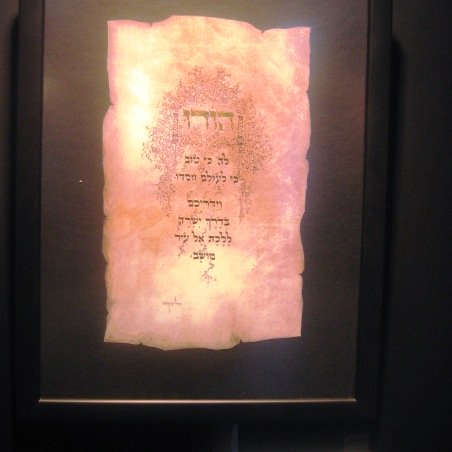 הודו
לה' כי טוב
כי לעולם חסדו
וידריכם
בדרך ישרה
ללכת אל עיר
מושב